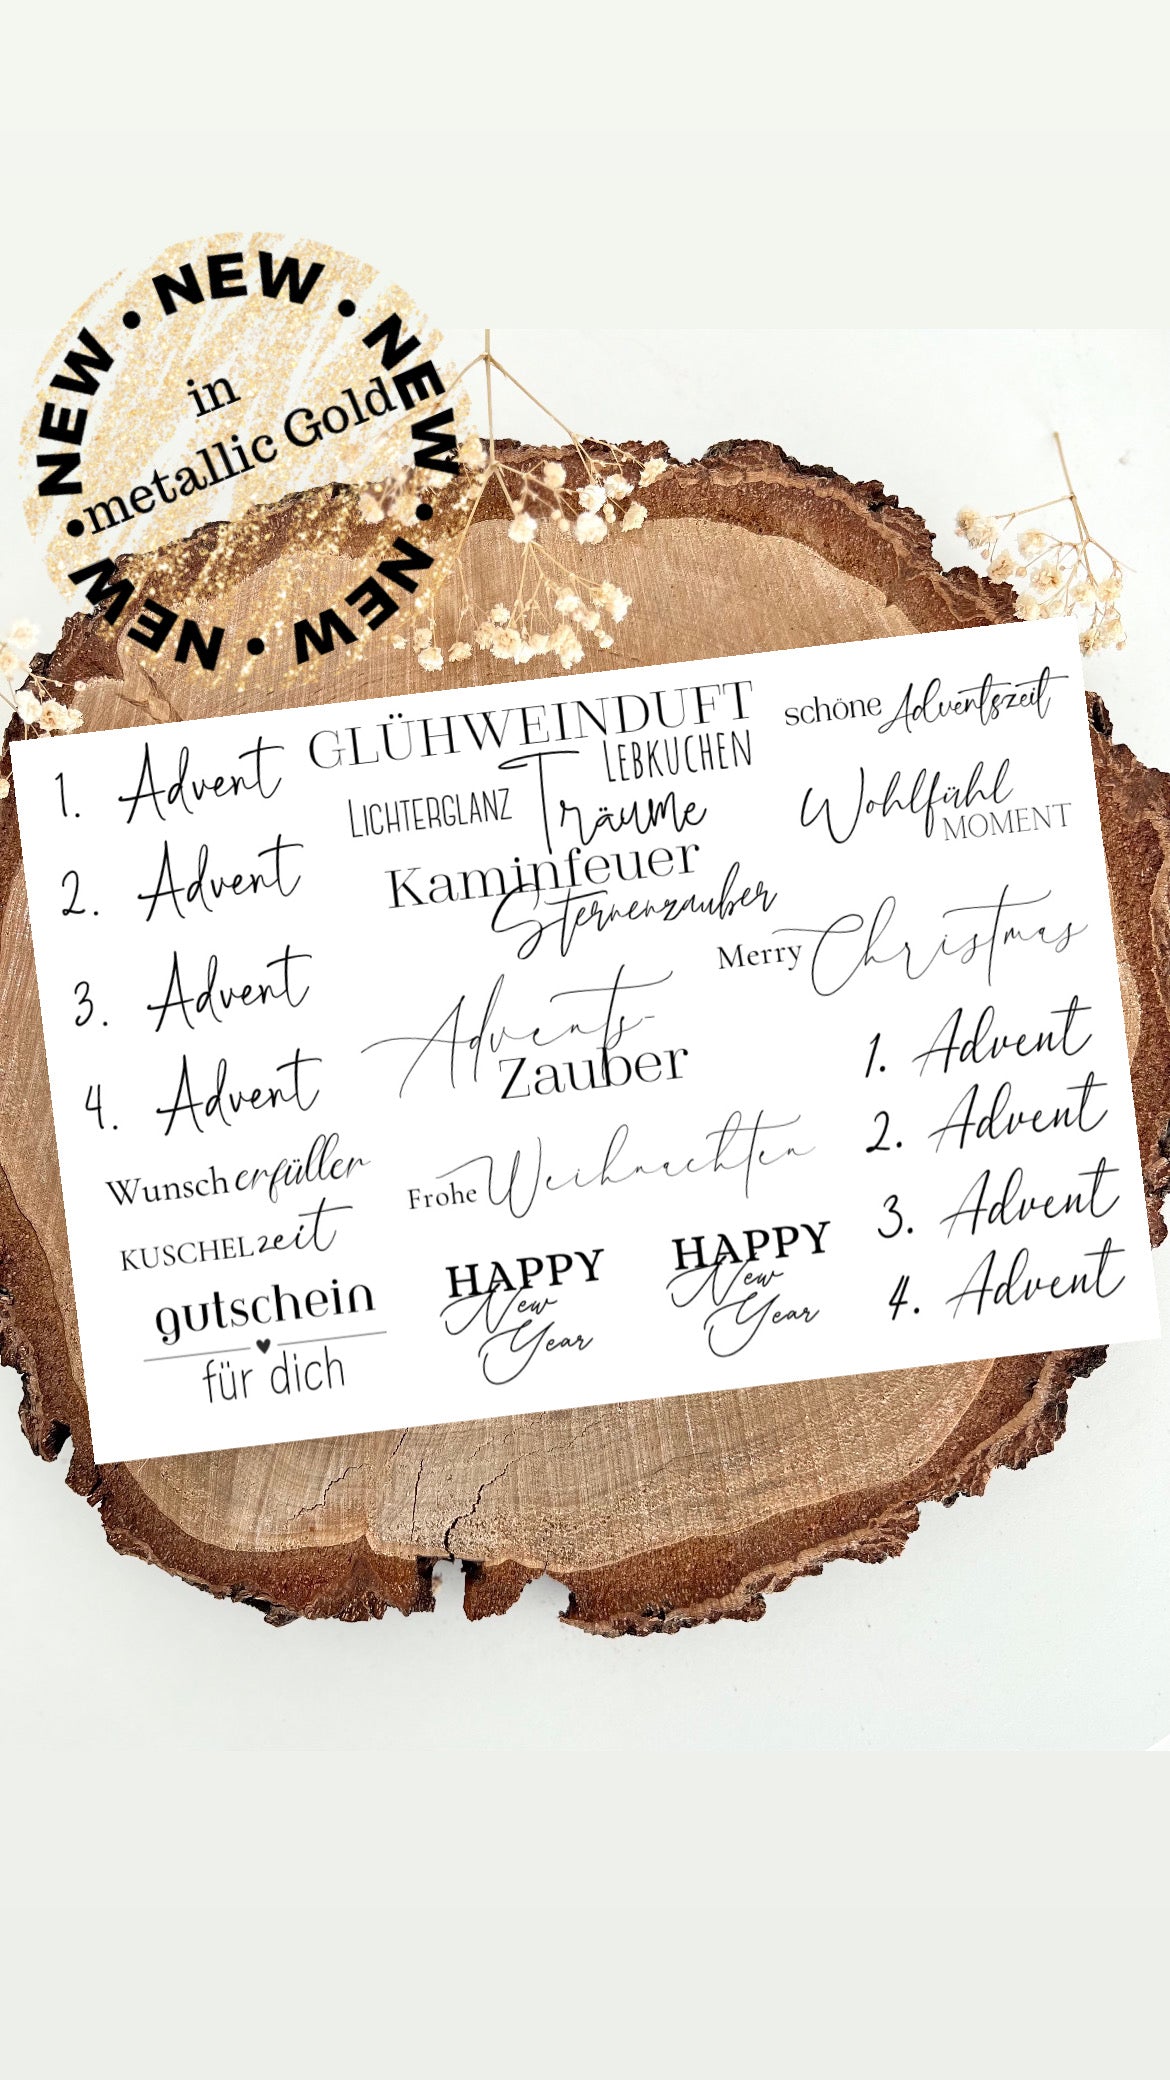 NEW • NEW • NEW • NEW • NEW • NEW •
in
metallic Gold
1. Advent
2. Advent
3. Advent
4. Advent
Wunscherfüller
KUSCHELzeit
gutschein
für dich
GLÜHWEINDUFT
LEBKUCHEN
LICHTERGLANZ
Träume
Kaminfeuer
Sternenzauber
Advents-
Zauber
Frohe Weihnachten
HAPPY
New
Year
HAPPY
New
Year
schöne Adventszeit
Wohlfühl
MOMENT
Merry Christmas
1. Advent
2. Advent
3. Advent
4. Advent